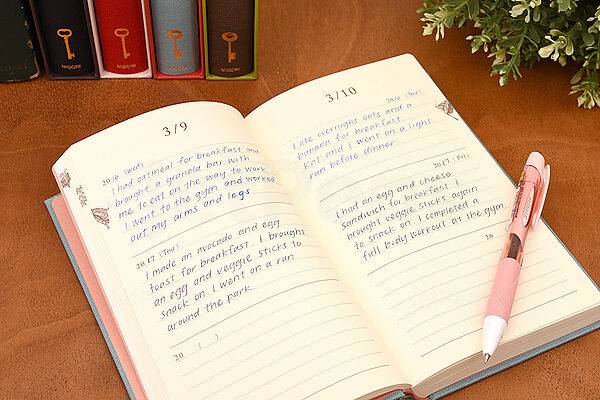 MIDORI
MIDORI
MIDORI
MIDORI
3/9
2016 (Wed)
I had oatmeal for breakfast and
brought a granola bar with
me to eat on the way to work
I went to the gym and worked
out my arms and legs
2017 (Thu)
I made an avocado and egg
toast for breakfast. I brought
an egg and veggie sticks to
snack on. I went on a run
around the park.
20 ( )
3/10
2016 (Thu)
I ate overnight oats and a
banana for breakfast
Kat and I went on a light
run before dinner
2017 (Fri)
I had an egg and cheese
sandwich for breakfast I
brought veggie sticks again
to snack on. I completed a
full body workout at the gym
20